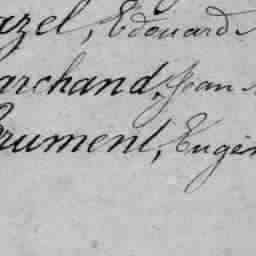 azel, Edouard
archand, Jean
rument, Eugèn